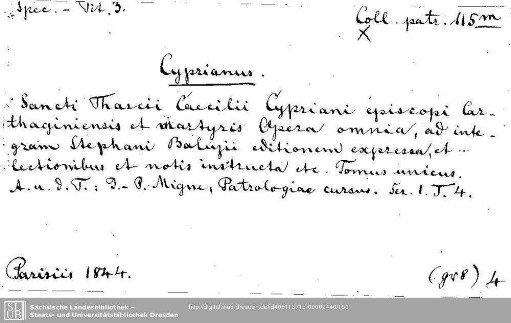 Spec. - Tit. 3.
Coll. patr. 115m
X
Cyprianus.
Sancti Thascii Caecilii Cypriani episcopi Car-
thaginiensis et martyris Opera omnia, ad inte-
gram Stephani Baluzii editionem expressa, et -
lectionibus et notis instructa etc. Tomus unicus.
A. u. d. T.: J.-P. Migne, Patrologiae cursus. Ser. I. T. 4.
Parisiis 1844.
(gr8) 4
Sächsische Landesbibliothek –
Staats- und Universitätsbibliothek Dresden